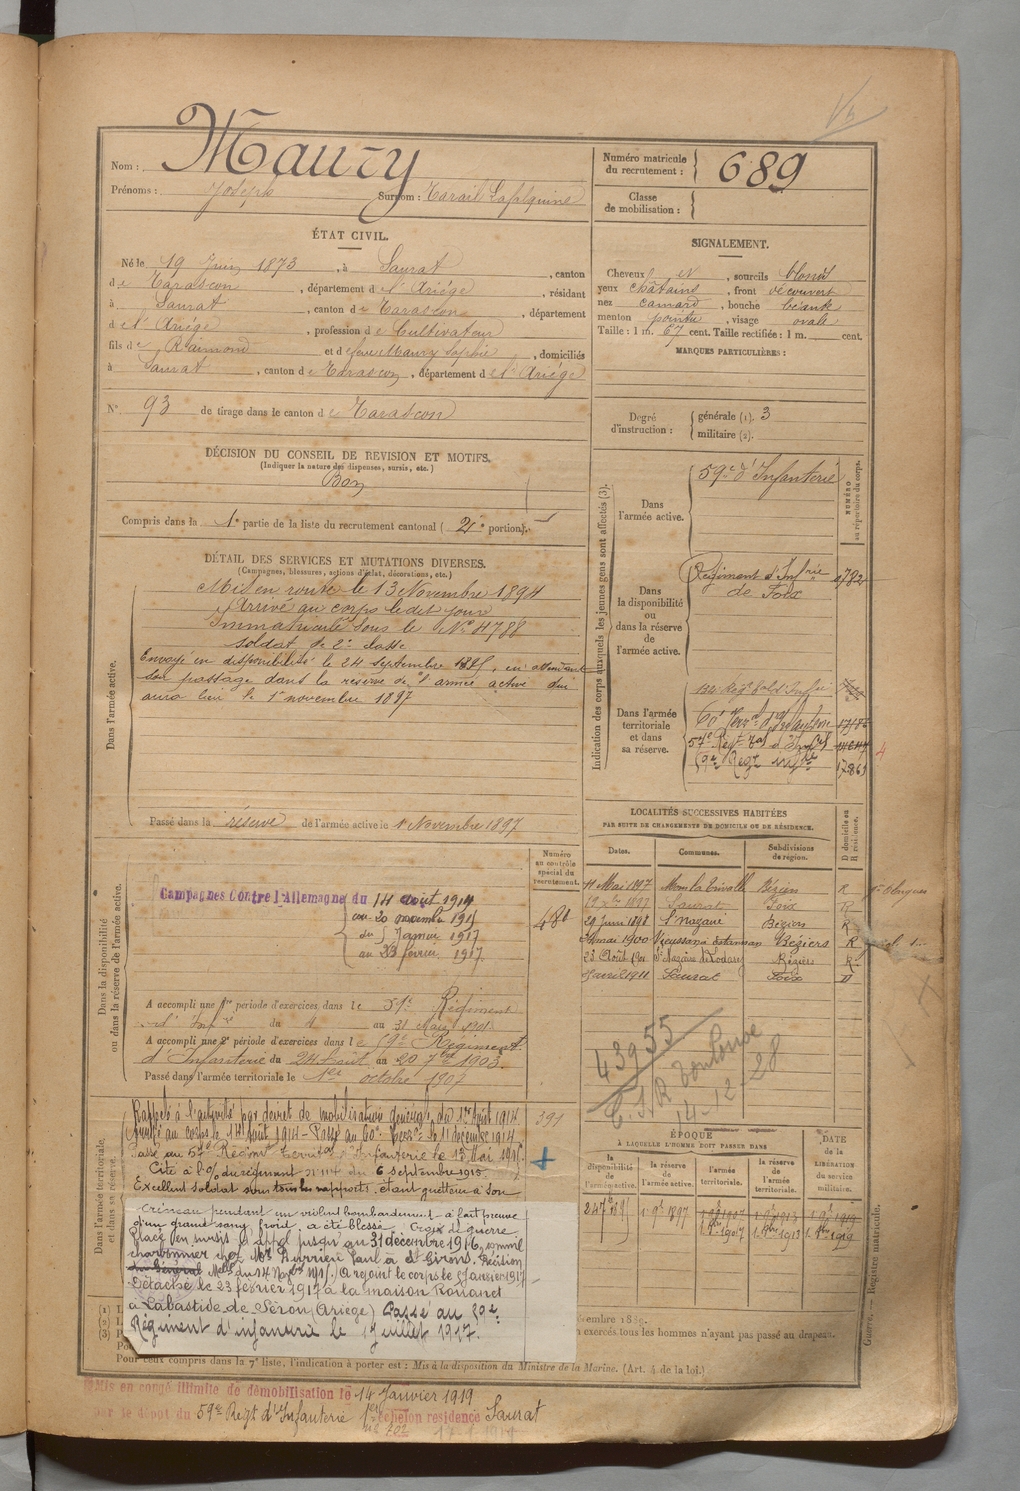 Nom : Maury
Prénoms : Joseph Surnom :
Numéro matricule du recrutement : 689
Classe de mobilisation :
ÉTAT CIVIL.
Né le 19 Juin 1873, à Saurat, canton
de Tarascon, département de l'Ariège, résidant
à Saurat, canton de Tarascon, département
de l'Ariège, profession de Cultivateur
fils de Raimond et de feue Maury Sophie, domiciliés
à Saurat, canton de Tarascon, département de l'Ariège
N° 93 de tirage dans le canton de Tarascon
SIGNALEMENT.
Cheveux et, sourcils blonds
yeux châtains, front découvert
nez camard, bouche béante
menton pointu, visage ovale
Taille : 1 m. 67 cent. Taille rectifiée : 1 m. cent.
MARQUES PARTICULIÈRES :
Degré d'instruction : générale (1). 3
militaire (2).
DÉCISION DU CONSEIL DE REVISION ET MOTIFS.
(Indiquer la nature des dispenses, sursis, etc.)
Bon
Compris dans la 1e partie de la liste du recrutement cantonal ( 2e portion).
DÉTAIL DES SERVICES ET MUTATIONS DIVERSES.
(Campagnes, blessures, actions d'éclat, décorations, etc.)
Dans l'armée active.
Mis en route le 13 Novembre 1894
Arrivé au corps le dit jour
Immatriculé sous le N° 4788
soldat de 2e classe
Envoyé en disponibilité le 24 septembre 1895, en attendant
son passage dans la réserve de l'armée active qui
aura lieu le 1er novembre 1897
Passé dans la réserve de l'armée active le 1 Novembre 1897
Indication des corps auxquels les jeunes gens sont affectés (3).
NUMÉRO au répertoire du corps.
Dans l'armée active.
59e d'Infanterie
Dans la disponibilité ou dans la réserve de l'armée active.
Régiment d'Infrie de Foix 4782
Dans l'armée territoriale et dans sa réserve.
60e Terral d'Infanterie
57e Régt Tal d'Infie
59e Régt Infie
LOCALITÉS SUCCESSIVES HABITÉES
PAR SUITE DE CHANGEMENTS DE DOMICILE OU DE RÉSIDENCE.
Dates. Communes. Subdivisions de région. D domicile ou R résidence.
11 Mai 1897 Béziers R
1897 Saurat Foix R
29 Juin 1898 St Nazaire Béziers R
mai 1900 Béziers R
23 Août St Nazaire de Ladarez Béziers R
avril 1911 Saurat Foix D
Dans la disponibilité ou dans la réserve de l'armée active.
Numéro au contrôle spécial du recrutement.
680
Campagnes Contre l'Allemagne du 14 août 1914
au 20 novembre 1915
du 5 Janvier 1917
au 23 février 1917.
A accompli une 1re période d'exercices dans le Régiment
d'Infie du 4 au 31 Mars 1901
A accompli une 2e période d'exercices dans le 59e Régiment
d'Infanterie du 24 Août au 20 7bre 1903.
Passé dans l'armée territoriale le 1er octobre 1907
43955
Toulouse
14-12-28
Dans l'armée territoriale et dans sa réserve.
391
Rappelé à l'activité par décret de mobilisation générale du 1er Août 1914
Arrivé au corps le 14 Août 1914 - Passé au 60e Terral le 11 décembre 1914
Passé au 57e Régiment Territal d'Infanterie le 13 Mai 1915.
Cité à l'O/ du régiment n° 114 du 6 septembre 1915
Excellent soldat sous tous les rapports, étant guetteur à son
créneau pendant un violent bombardement - a fait preuve
d'un grand sang froid, a été blessé. Croix de guerre.
Placé en sursis d'appel jusqu'au 31 décembre 1916, comme
charbonnier chez Mr Paul à St Girons. Décision
A rejoint le corps le 5 Janvier 1917
Détaché le 23 février 1917 à la maison Rouanet
à Labastide-de-Sérou (Ariège) Passé au 59e
Régiment d'infanterie le 1er Juillet 1917.
ÉPOQUE
À LAQUELLE L'HOMME DOIT PASSER DANS
la disponibilité de l'armée active. la réserve de l'armée active. l'armée territoriale. la réserve de l'armée territoriale.
DATE de la LIBÉRATION du service militaire.
24 7bre 1895 1er 9bre 1897 1er 8bre 1907 1er 8bre 1913 1er 8bre 1919
n exercés tous les hommes n'ayant pas passé au drapeau.
Pour ceux compris dans la 7e liste, l'indication à porter est : Mis à la disposition du Ministre de la Marine. (Art. 4 de la loi.)
Guerre. — Registre matricule.
Mis en congé illimité de démobilisation le 14 Janvier 1919
par le dépôt du 59e Régt d'Infanterie 1er échelon résidence Saurat